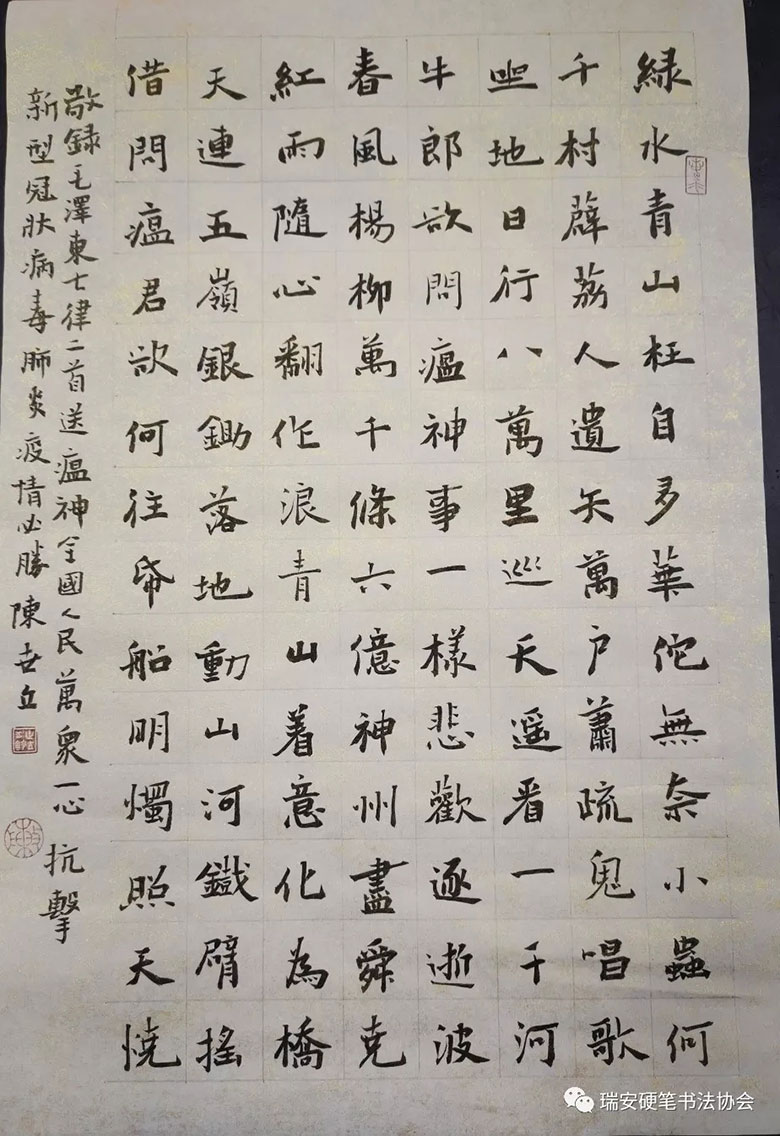 綠水青山枉自多華佗無奈小蟲何
千村薜荔人遺矢萬户蕭疏鬼唱歌
坐地日行八萬里巡天遥看一千河
牛郎欲問瘟神事一樣悲歡逐逝波
春風楊柳萬千條六億神州盡舜尭
紅雨隨心翻作浪青山着意化為橋
天連五嶺銀鋤落地動山河鐵臂搖
借問瘟君欲何往帋船明燭照天燒
敬錄毛澤東七律二首送瘟神全國人民萬衆一心抗擊
新型冠狀病毒肺炎疫情必勝 陳世丘
瑞安硬笔书法协会